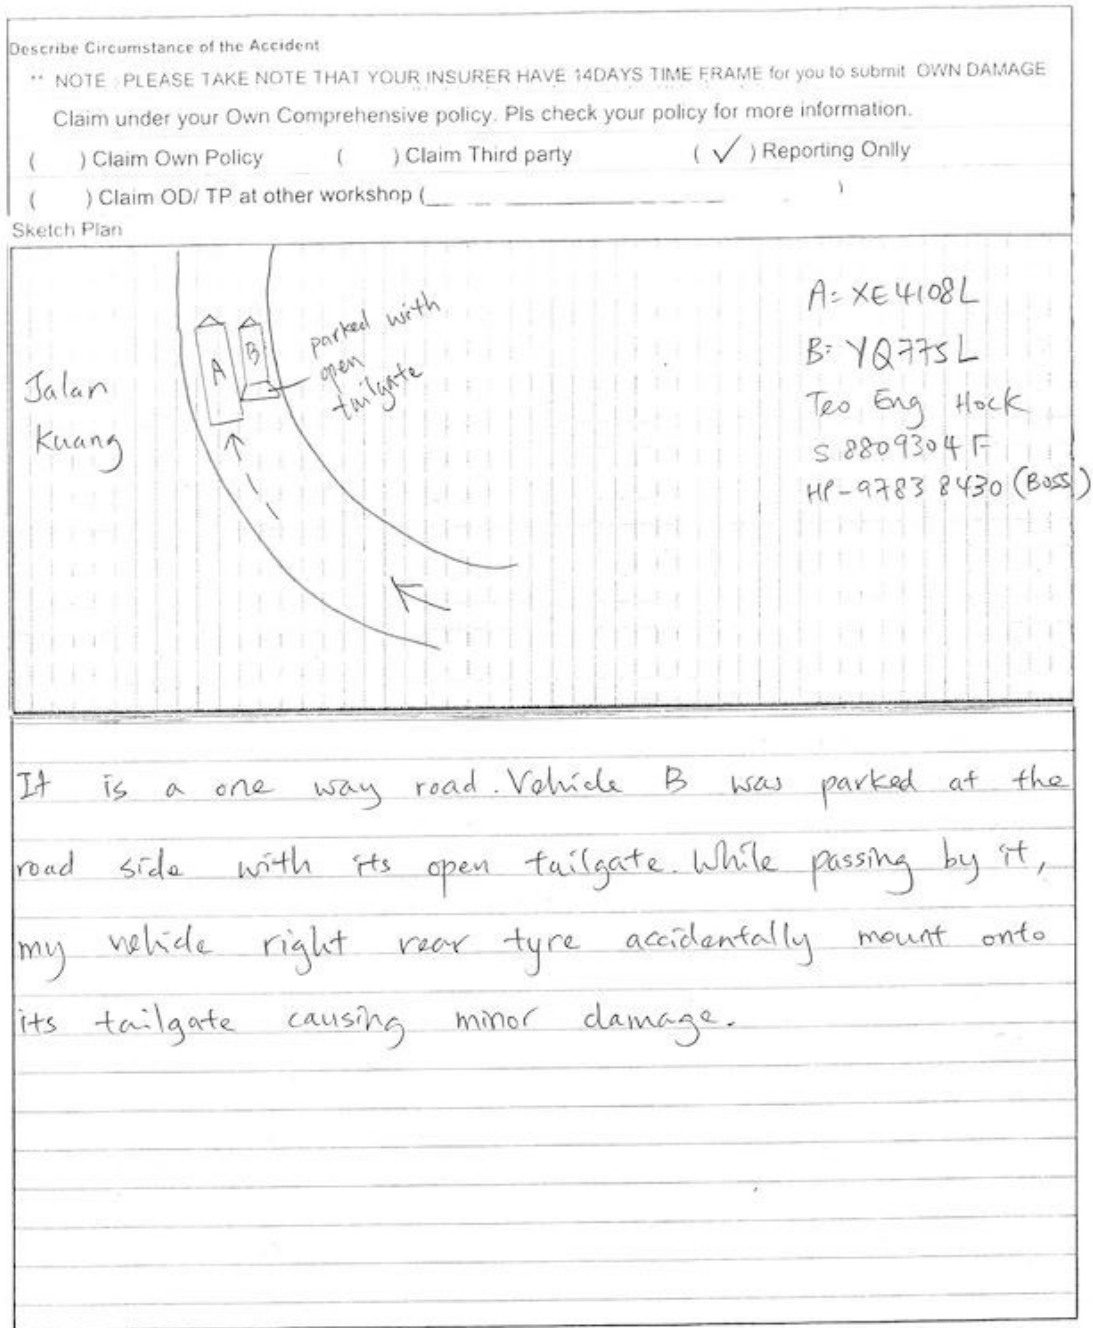 Describe Circumstance of the Accident
** NOTE : PLEASE TAKE NOTE THAT YOUR INSURER HAVE 14DAYS TIME FRAME for you to submit OWN DAMAGE
Claim under your Own Comprehensive policy. Pls check your policy for more information.
( ) Claim Own Policy ( ) Claim Third party ( ✓ ) Reporting Onlly
( ) Claim OD/ TP at other workshop ( )
Sketch Plan
A= XE4108L
B= YQ775L
Teo Eng Hock
S8809304F
HP-9783 8430 (Boss)
Jalan
Kuang
A
B
parked with
open
tailgate
It is a one way road. Vehicle B was parked at the
road side with its open tailgate. While passing by it,
my vehicle right rear tyre accidentally mount onto
its tailgate causing minor damage.